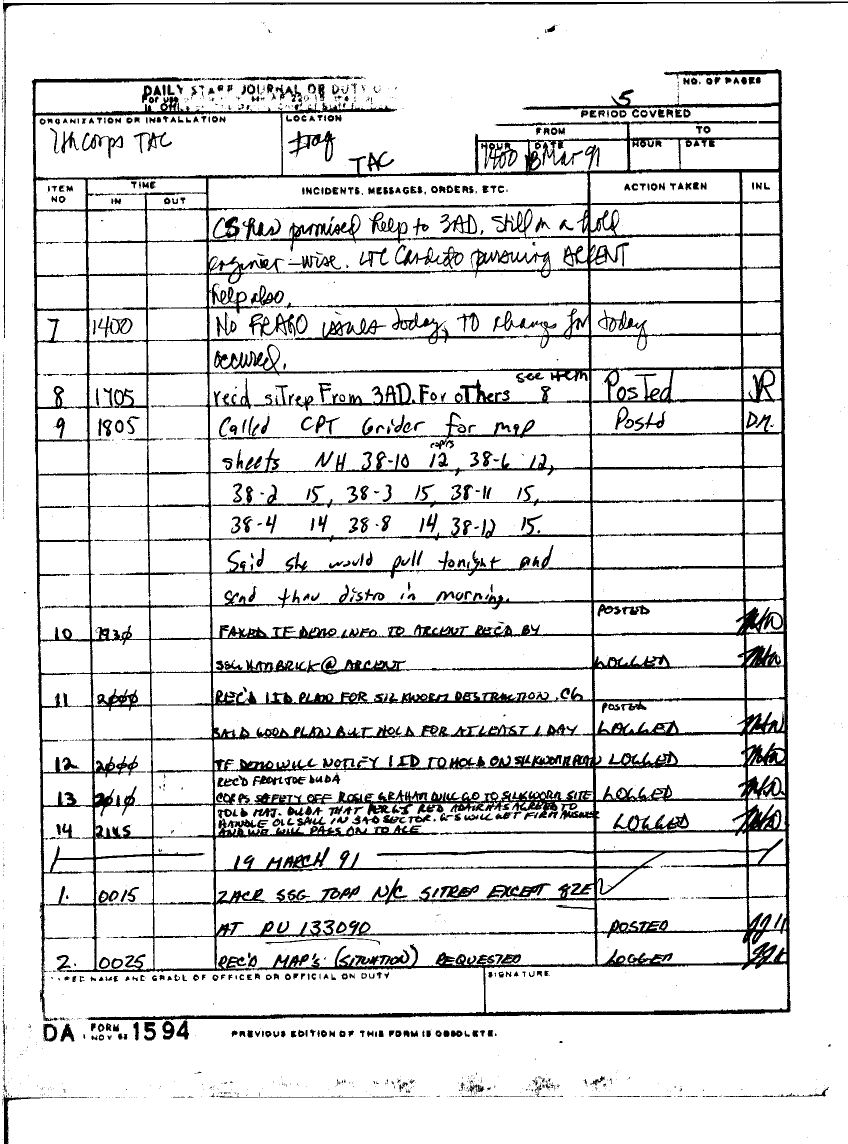 DAILY STAFF JOURNAL OR DUTY O
NO. OF PAGES
5
ORGANIZATION OR INSTALLATION
LOCATION
PERIOD COVERED
7th Corps TAC
Iraq
TAC
FROM
TO
HOUR DATE HOUR DATE
1400 18 Mar 91
ITEM NO TIME INCIDENTS, MESSAGES, ORDERS, ETC. ACTION TAKEN INL
IN OUT
CS has promised help to 3AD. Still on a hold
engineer-wise. LTC pursuing ARCENT
help also.
7 1400 No FRAGO issues today, TO change for today
occured.
8 1705 recd sitrep From 3AD. For others see item 8 Posted JR
9 1805 Called CPT Grider for map Postd D.M.
sheets NH 38-10 12 copies, 38-6 12,
38-2 15, 38-3 15, 38-11 15,
38-4 14, 38-8 14, 38-12 15.
Said she would pull tonight and
send thru distro in morning.
10 1930 FAXED TF DEMO INFO TO ARCENT REC'D BY POSTED
SSG HAMBRICK @ ARCENT LOGGED
11 2000 REC'D 1ID PLAN FOR SILKWORM DESTRACTION. CG
SAID GOOD PLAN BUT HOLD FOR AT LEAST 1 DAY POSTED LOGGED
12 2000 TF DEMO WILL NOTIFY 1ID TO HOLD ON SILKWORM PLAN LOGGED
REC'D FROM JOE DUDA
13 2010 CORPS SAFETY OFF ROSIE GRAHAM WILL GO TO SILKWORM SITE LOGGED
TOLD MAJ. DUDA THAT PER G5 RED ADAIR HAS AGREED TO
14 2145 HANDLE OIL SALL IN 3AD SECTOR. G-5 WILL GET FIRM ANSWER LOGGED
AND WE WILL PASS ON TO
19 MARCH 91
1. 0015 2ACR SSG TOPP N/C SITREP EXCEPT 82E
AT PU 133090 POSTED
2. 0025 REC'D MAP'S (SITUATION) REQUESTED LOGGED
TYPED NAME AND GRADE OF OFFICER OR OFFICIAL ON DUTY
SIGNATURE
DA FORM 1594
1 NOV 62
PREVIOUS EDITION OF THIS FORM IS OBSOLETE.